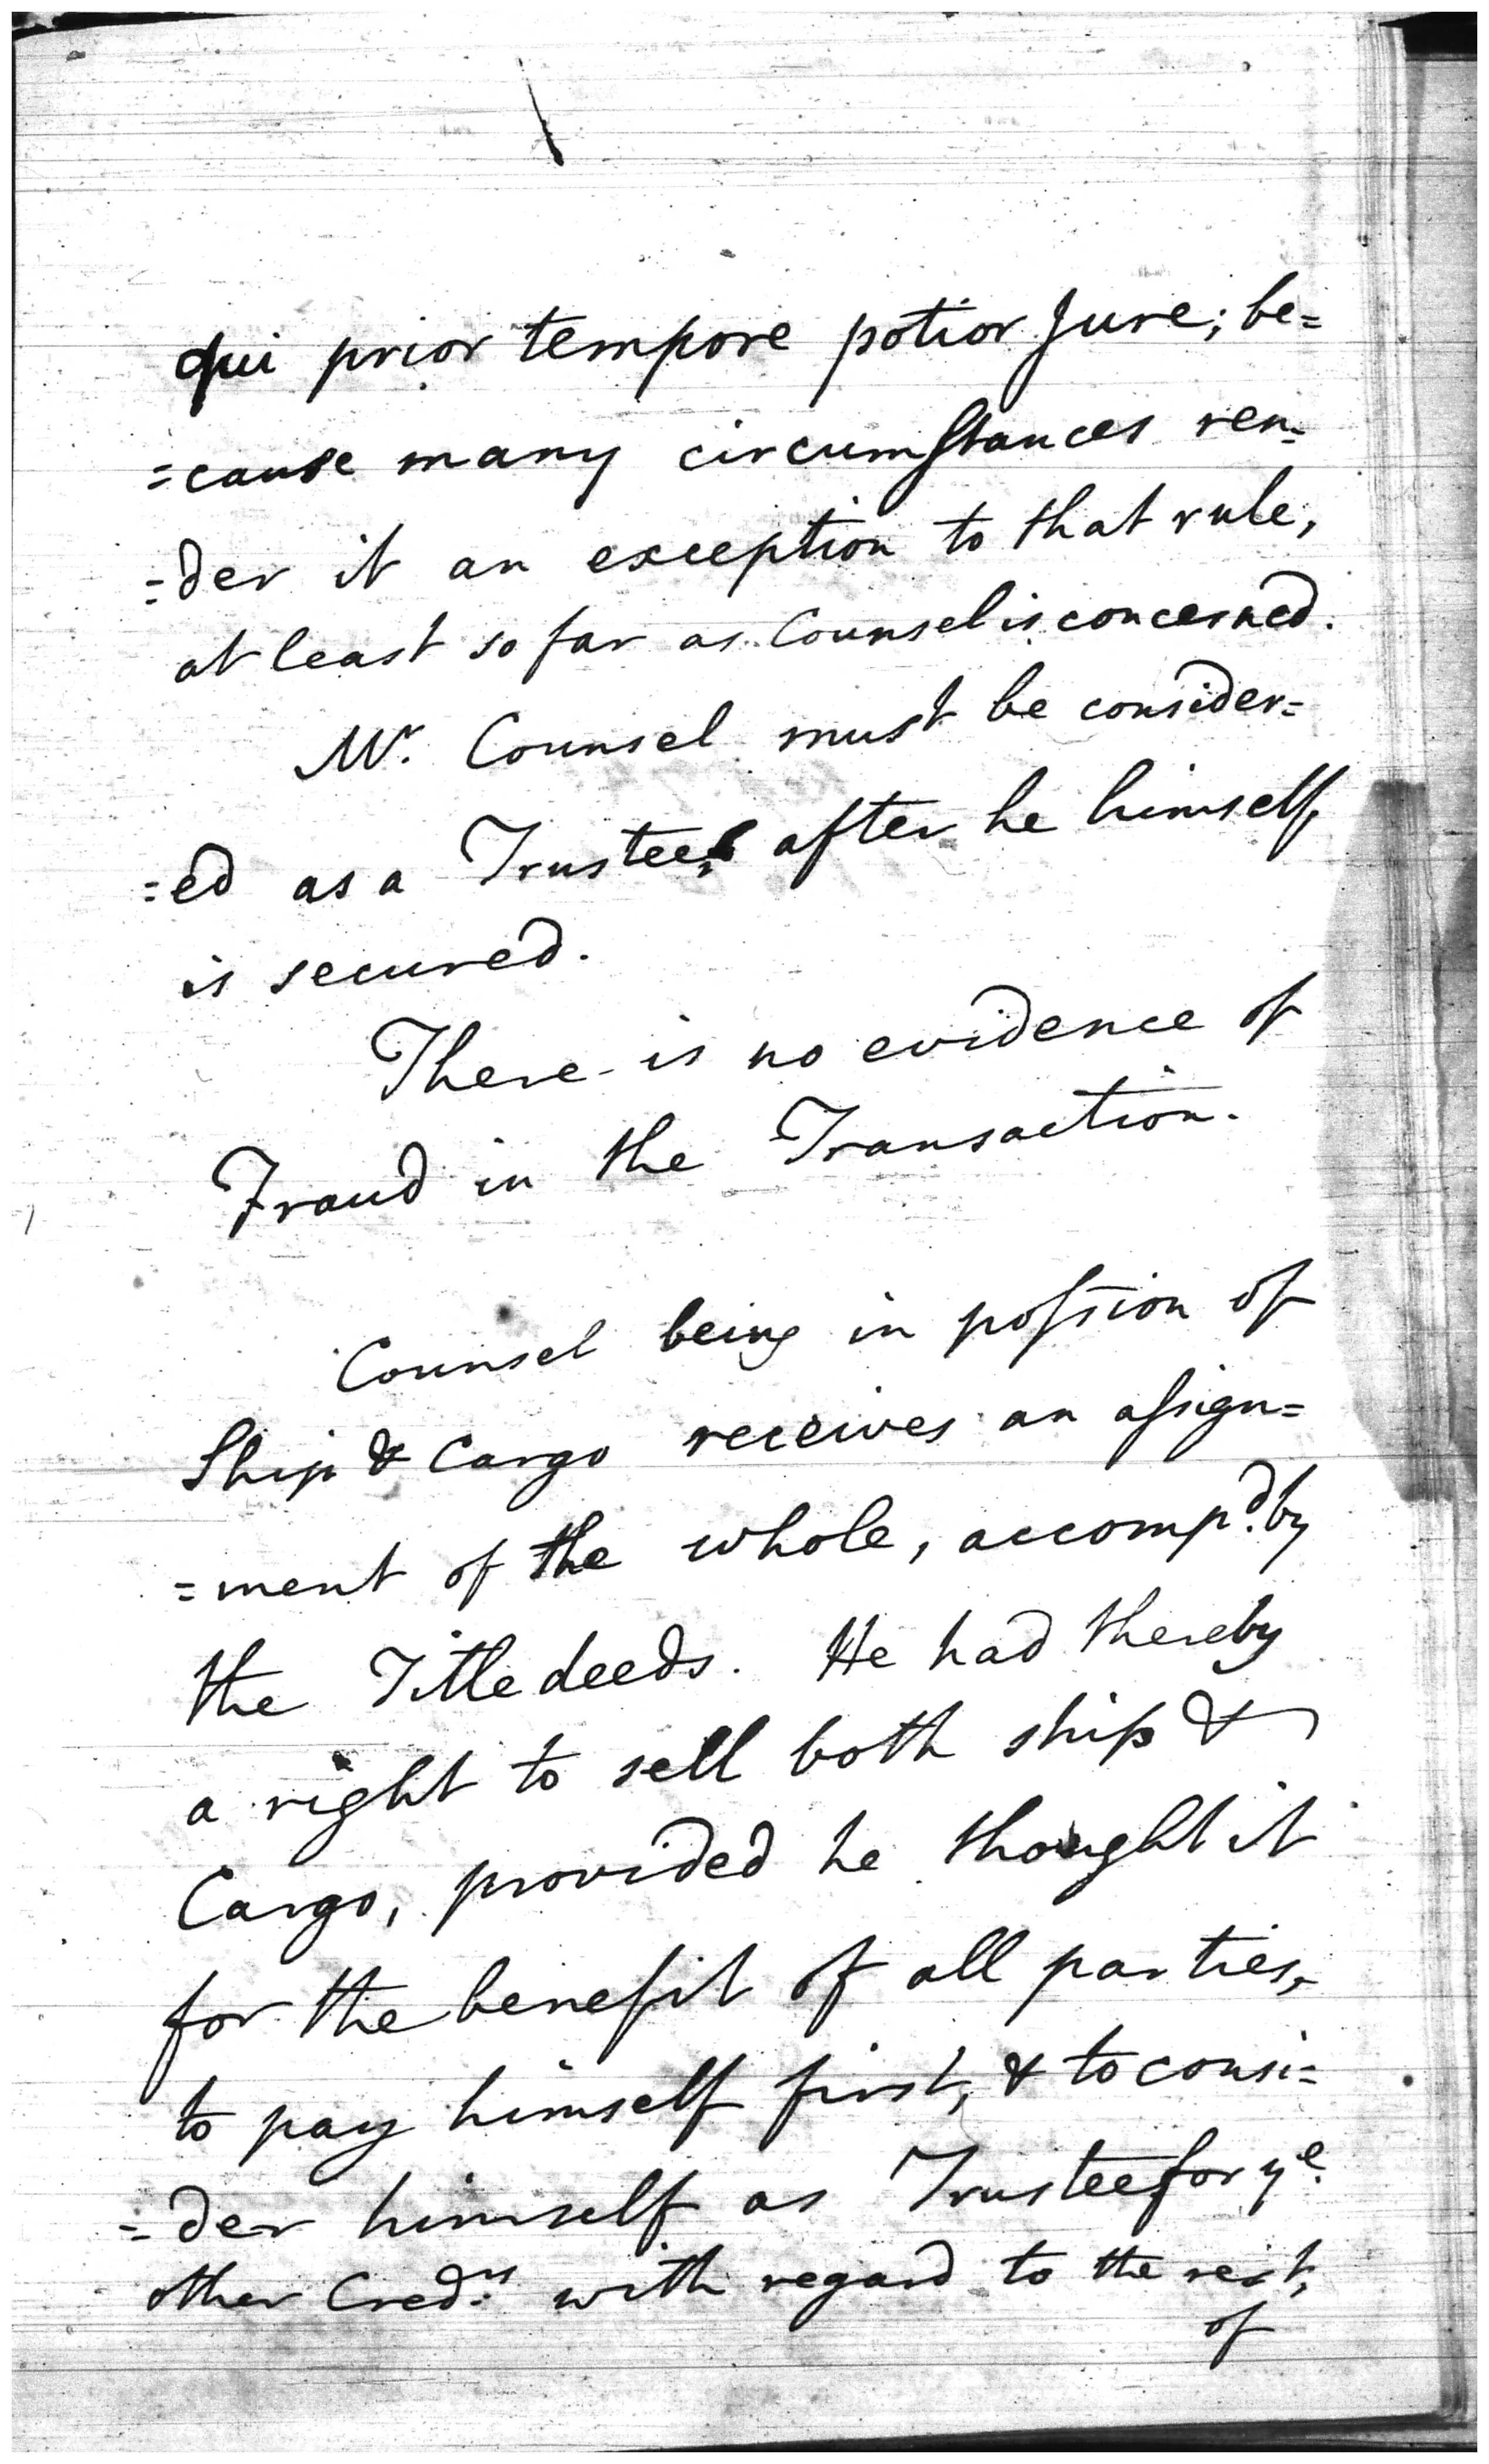 qui prior tempore potior Jure; be=
=cause many circumstances ren=
=der it an exception to that rule,
at least so far as Counsel is concerned.
Mr. Counsel must be consider=
=ed as a Trustee, after he himself
is secured.
There is no evidence of
Fraud in the Transaction.
Counsel being in possion of
Ship & Cargo receives an assign=
=ment of the whole, accompd. by
the Title deeds. He had thereby
a right to sell both ship &
Cargo, provided he thought it
for the benefit of all parties,
to pay himself first, & to consi=
=der himself as Trustee for ye.
other Credrs. with regard to the rest,
of